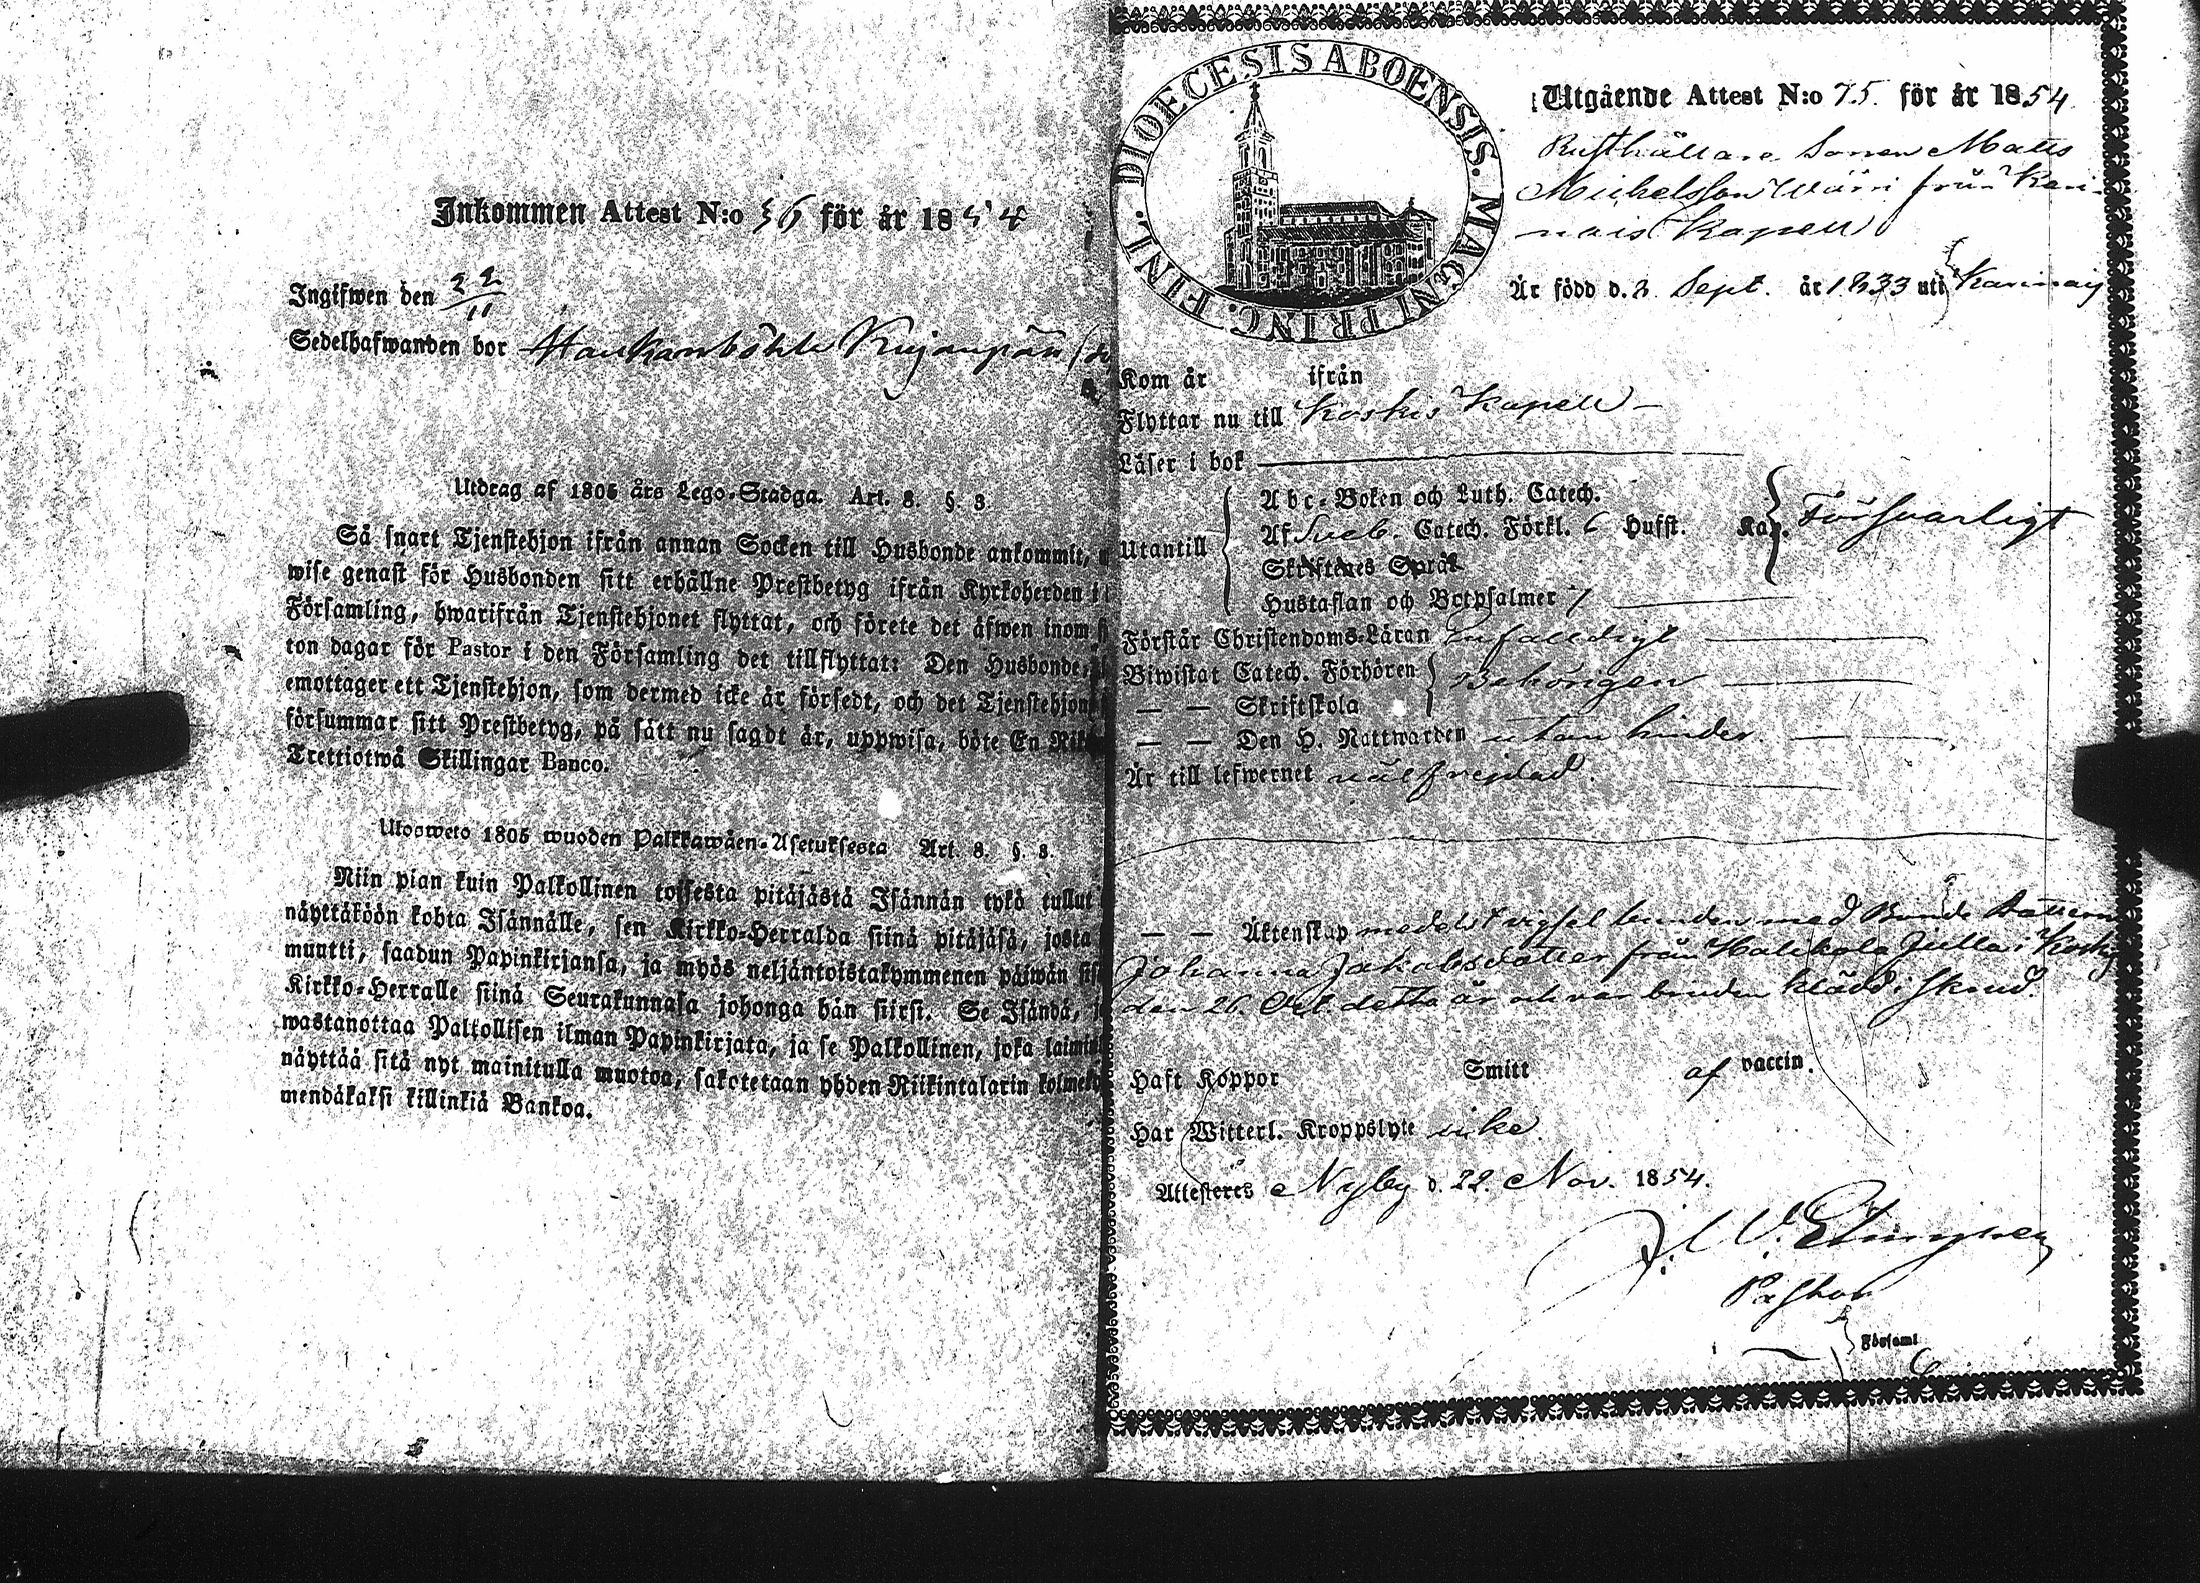 Inkommen Attest N:o 36 för år 1854
Ingifwen den 22/11
Sedelhafwanden bor Haukanböhle Kujanpää
Utdrag af 1805 års Lego-Stadga. Art. 8. §. 3.
Så snart Tjenstehjon ifrån annan Socken till Husbonde ankommit,
wise genast för Husbonden sitt erhållne Prestbetyg ifrån Kyrkoherden i
Församling, hwarifrån Tjenstehjonet flyttat, och förete det äfwen inom
ton dagar för Pastor i den Församling det tillflyttat: Den Husbonde,
emottager ett Tjenstehjon, som dermed icke är försedt, och det Tjenstehjon
försummar sitt Prestbetyg, på sätt nu sagdt är, uppwisa, böte En Rik
Trettiotwå Skillingar Banco.
Ulosweto 1805 wuoden Palkkawäen-Asetuksesta Art. 8. §. 3.
Niin pian kuin Palkollinen toisesta pitäjästä Isännän tykö tullut
näyttäköön kohta Isännälle, sen Kirkko-Herralda siinä pitäjäsä, josta
muutti, saadun Papinkirjansa, ja myös neljäntoistakymmenen päiwän sis
Kirkko-Herralle siinä Seurakunnasa johonga hän siirsi. Se Isändä, j
wastanottaa Palkollisen ilman Papinkirjata, ja se Palkollinen, joka laimin
näyttää sitä nyt mainitulla muotoa, sakotetaan yhden Riikintalarin kolmeky
mendäkaksi killinkiä Bankoa.
DIOECESIS ABOENSIS. MAGNI PRINC. FINL.
Utgående Attest N:o 75. för år 1854
Rusthållare Sonen Matts
Michelsson Wärri från Kari-
nais Kapell
Är född d. 2 Sept. år 1833 uti Karinais
Kom år ifrån
Flyttar nu till Koskis Kapell –
Läser i bok
Utantill
Abc-Boken och Luth. Catech.
Af Sveb. Catech. Förkl. 6 Hufst. Kap. Försvarligt
Skriftenes Språk
Hustaflan och Botpsalmer 7
Förstår Christendoms-Läran Enfaldigt
Biwistat Catech. Förhören Behörigen
— — Skriftskola
— — Den H. Nattwarden utan hinder.
Är till lefwernet välfrejdad.
— — Äktenskap medelst vigsel bunden med Bonde Dottern
Johanna Jakobsdotter från Halikola Juttila i Koskis
den 26. Oct. detta år och var bruden klädd i skrud.
Haft Koppor Smitt af vaccin.
Har Witterl. Kroppslyte icke
Attesteres Nyby d. 22. Nov. 1854.
Pastor
Församl